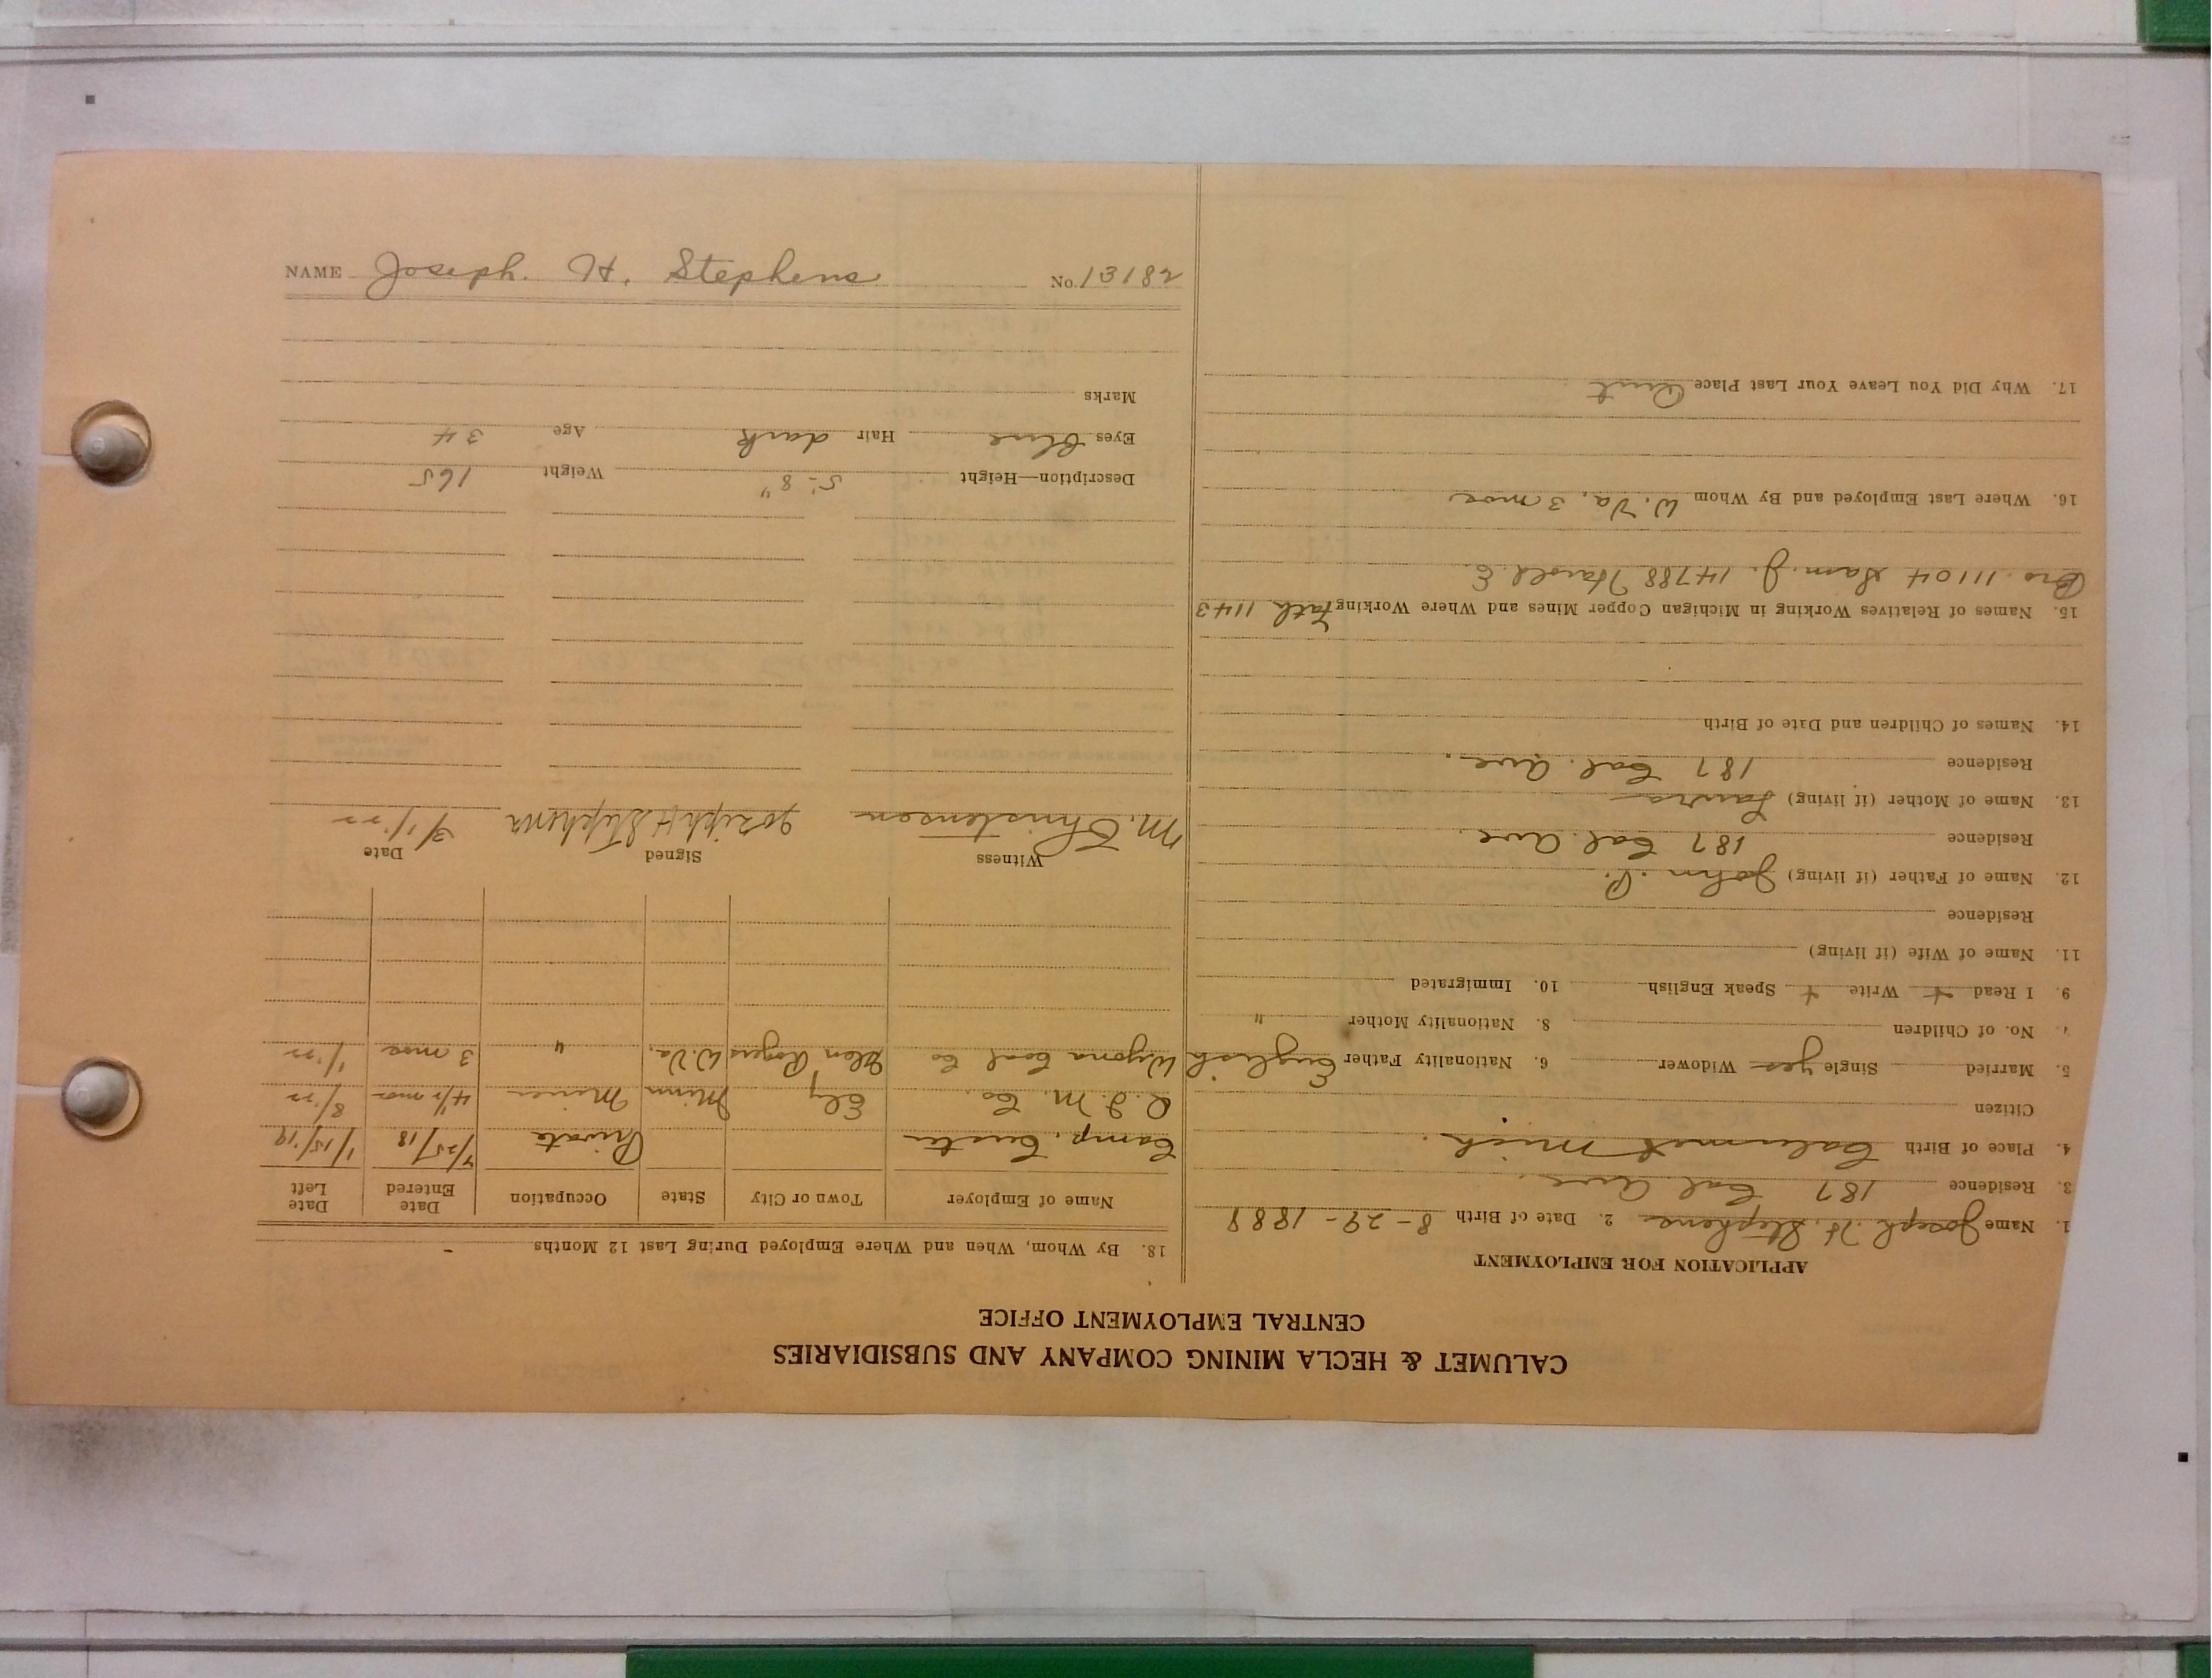 CALUMET & HECLA MINING COMPANY AND SUBSIDIARIES
CENTRAL EMPLOYMENT OFFICE
APPLICATION FOR EMPLOYMENT
1. Name Joseph H. Stephens 2. Date of Birth 8-29-1888
3. Residence 187 Cal. Ave.
4. Place of Birth Calumet Mich.
Citizen
5. Married Single yes Widower 6. Nationality Father English
7. No. of Children 8. Nationality Mother "
9. I Read + Write + Speak English 10. Immigrated
11. Name of Wife (if living)
Residence
12. Name of Father (if living) John P.
Residence 187 Cal. Ave.
13. Name of Mother (if living)
Residence 187 Cal. Ave.
14. Names of Children and Date of Birth
15. Names of Relatives Working in Michigan Copper Mines and Where Working Fath 1143
Bro. 11104 Sam. J. 14788 Harold E.
16. Where Last Employed and By Whom W. Va. 3 mos
17. Why Did You Leave Your Last Place Quit
18. By Whom, When and Where Employed During Last 12 Months
Name of Employer Town or City State Occupation Date Entered Date Left
Camp. Custer Private 7/25/18 1/15/19
O. I. M. Co. Ely Minn Miner 4 1/2 mos 8/22
Wyoma Coal Co Glen Rogers W. Va. " 3 mos 1/22
Witness Signed Date
M. Christensen Joseph H Stephens 3/1/22
Description—Height 5'-8" Weight 165
Eyes blue Hair dark Age 34
Marks
NAME Joseph. H. Stephens No. 13182